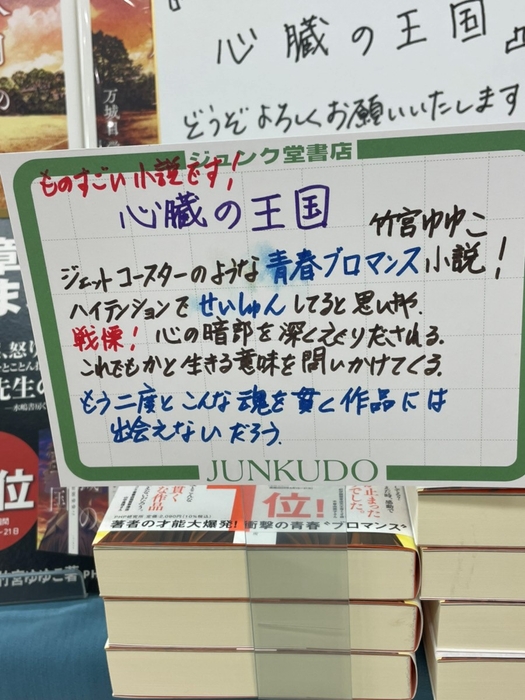 心臓の王国
どうぞよろしくお願いいたします
万城目
ジュンク堂書店
ものすごい小説です！
心臓の王国
竹宮ゆゆこ
ジェットコースターのような青春ブロマンス小説！
ハイテンションでせいしゅんしてると思いきや、
戦慄！心の暗部を深くえぐりだされる。
これでもかと生きる意味を問いかけてくる。
もう二度とこんな魂を貫く作品には
出会えないだろう。
JUNKUDO
位
竹宮ゆゆこ著
位！
著者の才能大爆発！衝撃の青春"ブロマンス"